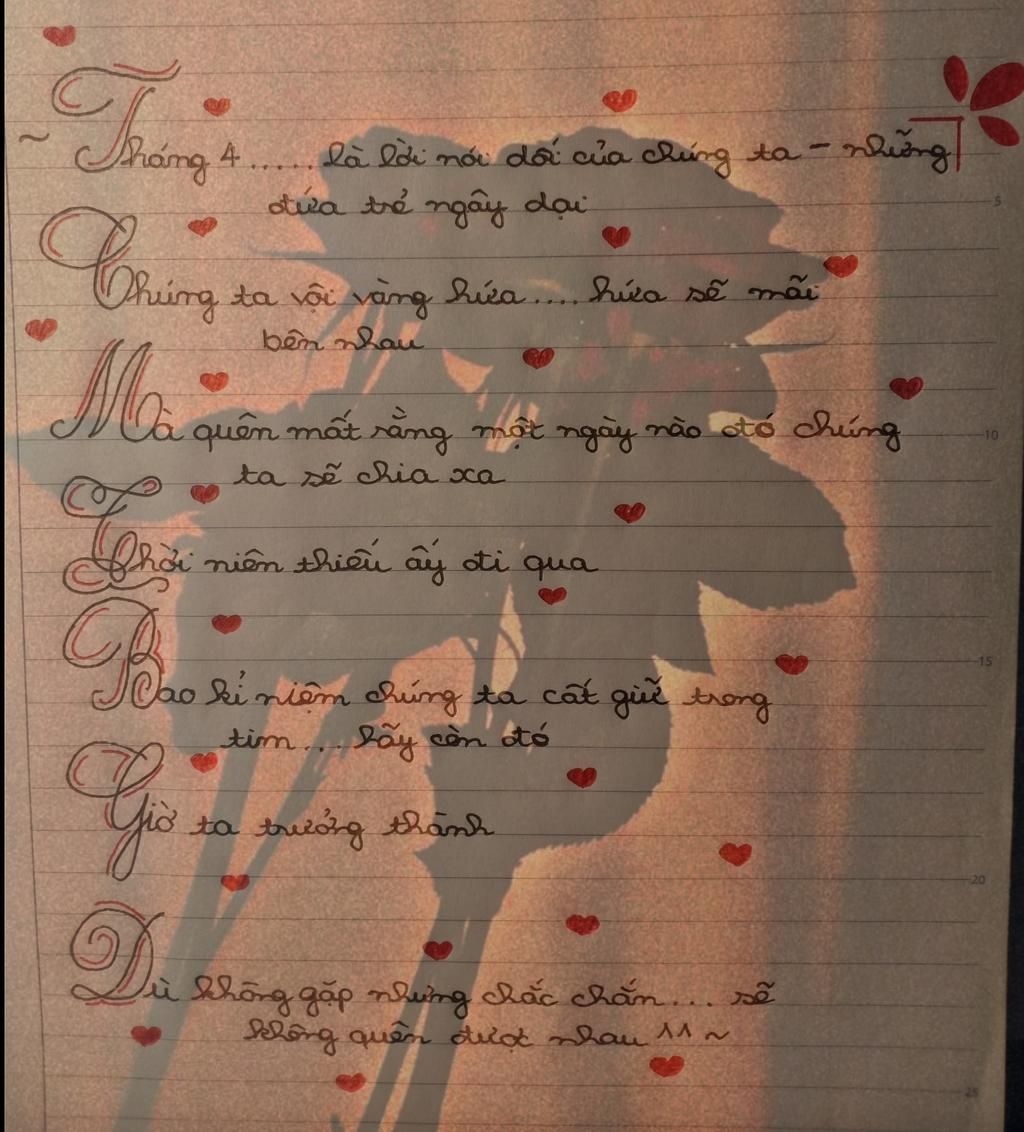 ~ Tháng 4...... là lời nói dối của chúng ta - những
đứa trẻ ngây dại
Chúng ta vội vàng hứa.... hứa sẽ mãi
bên nhau
Mà quên mất rằng một ngày nào đó chúng
ta sẽ chia xa
Thời niên thiếu ấy đi qua
Bao kỉ niệm chúng ta cất giữ trong
tim... hãy còn đó
Giờ ta trưởng thành
Dù không gặp nhưng chắc chắn... sẽ
không quên được nhau ^^ ~
5
10
15
20
25